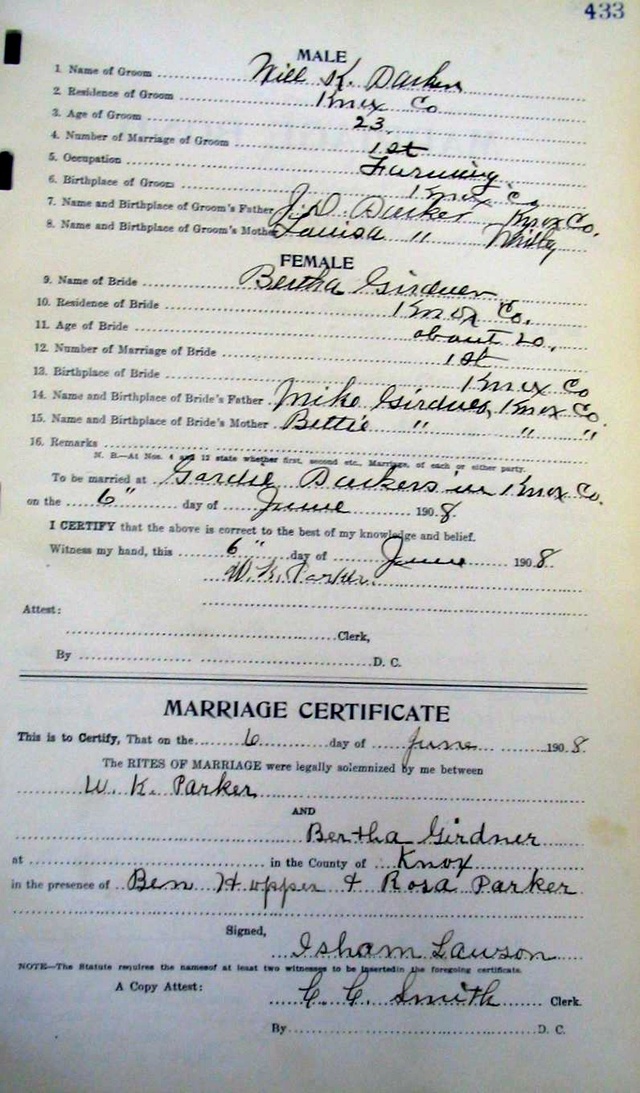 433
MALE
1. Name of Groom Will K. Parker
2. Residence of Groom Knox Co
3. Age of Groom 23.
4. Number of Marriage of Groom 1st
5. Occupation Farming
6. Birthplace of Groom Knox Co
7. Name and Birthplace of Groom's Father J. D. Parker Knox Co.
8. Name and Birthplace of Groom's Mother Louisa " Whitly
FEMALE
9. Name of Bride Bertha Girdner
10. Residence of Bride Knox Co.
11. Age of Bride about 20.
12. Number of Marriage of Bride 1st
13. Birthplace of Bride Knox Co
14. Name and Birthplace of Bride's Father Mike Girdner, Knox Co.
15. Name and Birthplace of Bride's Mother Bettie " " "
16. Remarks
N. B.—At Nos. 4 and 12 state whether first, second etc., Marriage, of each or either party.
To be married at Parkers in Knox Co.
on the 6" day of June 1908.
I CERTIFY that the above is correct to the best of my knowledge and belief.
Witness my hand, this 6" day of June 1908.
W. K. Parker.
Attest:
Clerk,
By D. C.
MARRIAGE CERTIFICATE
This is to Certify, That on the 6 day of June 1908.
The RITES OF MARRIAGE were legally solemnized by me between
W. K. Parker
AND
Bertha Girdner
at in the County of Knox
in the presence of Ben Hopper & Rosa Parker
Signed,
Isham Lawson
NOTE—The Statute requires the namesof at least two witnesses to be insertedin the foregoing certificate.
A Copy Attest: C. C. Smith Clerk.
By D. C.